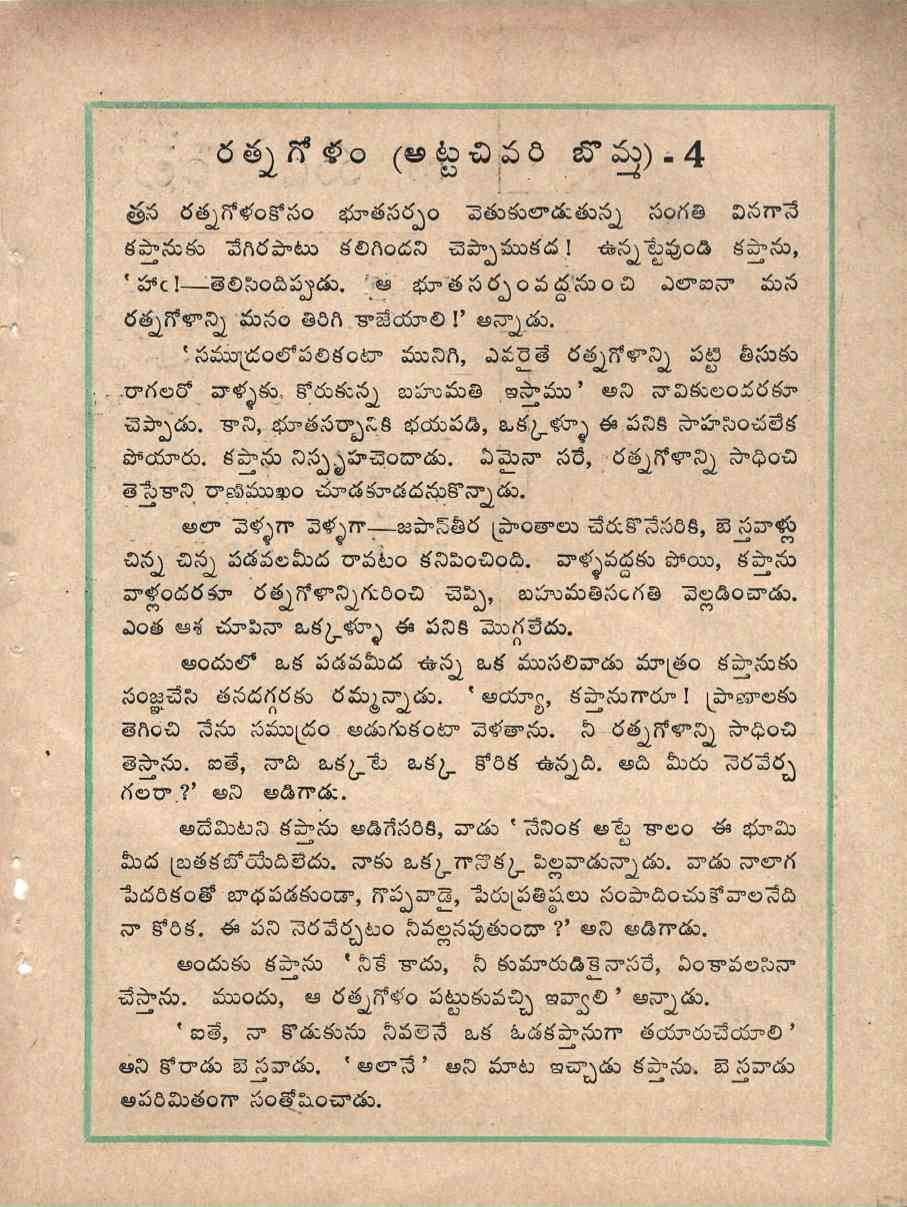 రత్నగోళం (అట్టచివరి బొమ్మ) - 4
తన రత్నగోళంకోసం భూతసర్పం వెతుకులాడుతున్న సంగతి వినగానే
కప్తానుకు వేగిరపాటు కలిగిందని చెప్పాముకద! ఉన్నట్టేవుండి కప్తాను,
‘హాఁ!—తెలిసిందిప్పుడు. ఆ భూతసర్పంవద్దనుంచి ఎలాఐనా మన
రత్నగోళాన్ని మనం తిరిగి కాజేయాలి!’ అన్నాడు.
‘సముద్రంలోపలికంటా మునిగి, ఎవరైతే రత్నగోళాన్ని పట్టి తీసుకు
రాగలరో వాళ్ళకు, కోరుకున్న బహుమతి ఇస్తాము’ అని నావికులందరకూ
చెప్పాడు. కాని, భూతసర్పానికి భయపడి, ఒక్కళ్ళూ ఈ పనికి సాహసించలేక
పోయారు. కప్తాను నిస్పృహచెందాడు. ఏమైనా సరే, రత్నగోళాన్ని సాధించి
తెస్తేకాని రాణిముఖం చూడకూడదనుకొన్నాడు.
అలా వెళ్ళగా వెళ్ళగా—జపాన్‌తీర ప్రాంతాలు చేరుకొనేసరికి, బెస్తవాళ్లు
చిన్న చిన్న పడవలమీద రావటం కనిపించింది. వాళ్ళవద్దకు పోయి, కప్తాను
వాళ్లందరకూ రత్నగోళాన్నిగురించి చెప్పి, బహుమతిసంగతి వెల్లడించాడు.
ఎంత ఆశ చూపినా ఒక్కళ్ళూ ఈ పనికి మొగ్గలేదు.
అందులో ఒక పడవమీద ఉన్న ఒక ముసలివాడు మాత్రం కప్తానుకు
సంజ్ఞచేసి తనదగ్గరకు రమ్మన్నాడు. ‘అయ్యా, కప్తానుగారూ! ప్రాణాలకు
తెగించి నేను సముద్రం అడుగుకంటా వెళతాను. నీ రత్నగోళాన్ని సాధించి
తెస్తాను. ఐతే, నాది ఒక్కటే ఒక్క కోరిక ఉన్నది. అది మీరు నెరవేర్చ
గలరా?’ అని అడిగాడు.
అదేమిటని కప్తాను అడిగేసరికి, వాడు ‘నేనింక అట్టే కాలం ఈ భూమి
మీద బ్రతకబోయేదిలేదు. నాకు ఒక్కగానొక్క పిల్లవాడున్నాడు. వాడు నాలాగ
పేదరికంతో బాధపడకుండా, గొప్పవాడై, పేరుప్రతిష్ఠలు సంపాదించుకోవాలనేది
నా కోరిక. ఈ పని నెరవేర్చటం నీవల్లనవుతుందా?’ అని అడిగాడు.
అందుకు కప్తాను ‘నీకే కాదు, నీ కుమారుడికైనాసరే, ఏంకావలసినా
చేస్తాను. ముందు, ఆ రత్నగోళం పట్టుకువచ్చి ఇవ్వాలి’ అన్నాడు.
‘ఐతే, నా కొడుకును నీవలెనే ఒక ఓడకప్తానుగా తయారుచేయాలి’
అని కోరాడు బెస్తవాడు. ‘అలానే’ అని మాట ఇచ్చాడు కప్తాను. బెస్తవాడు
అపరిమితంగా సంతోషించాడు.